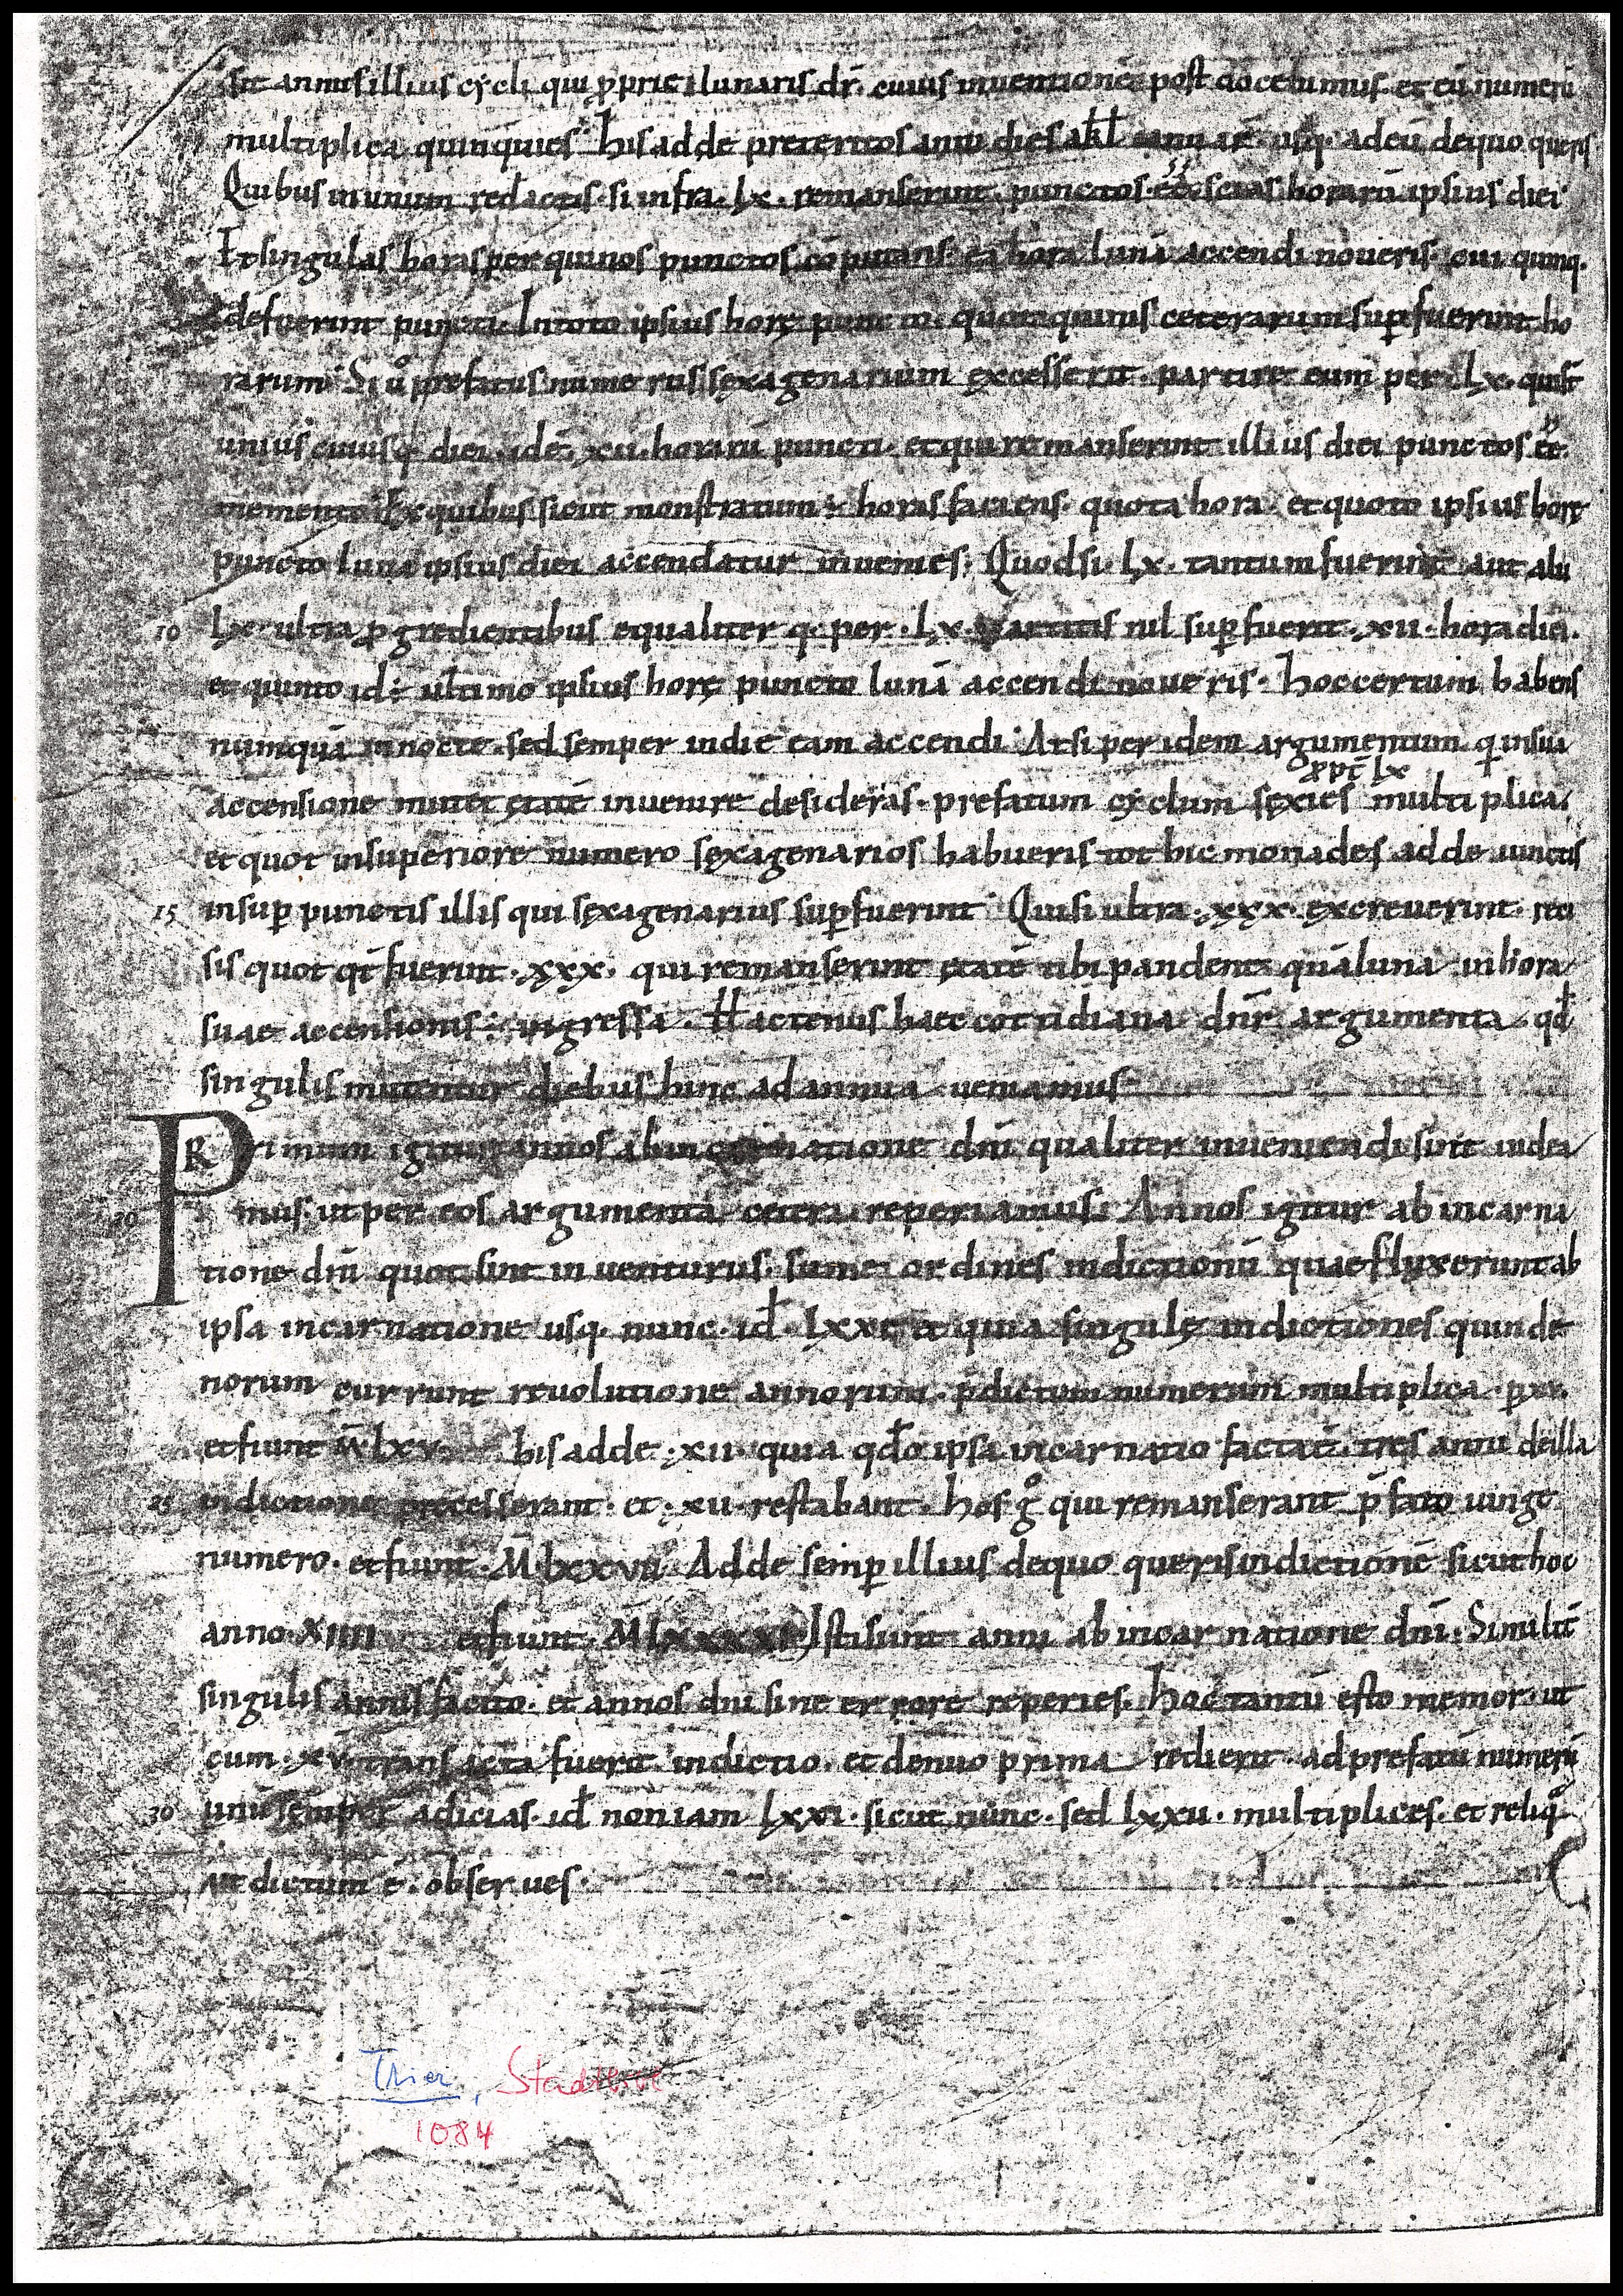 sit annus illius cycli qui ꝓprie lunaris dr̄. cuius inuentionē post docebimus. et eū numerū
multiplica quinquies. his adde preteritos anni dies a kl̄ ianuar̄. usq. ad eū de quo queris
Quibus in unum redactis. si infra. lx. remanserint. punctos ēē scias horarū ipsius diei
Et singulas horas per quinos punctos cōputans. ea hora lunā accendi noueris. cui quinq.
defuerint puncti. In toto ipsius horę puncto. quot quintis ceterarum sup̱fuerint ho
rarum. Si u͛o prefatus numerus sęxagenarium excesserit. partire eum per. lx. qui s̄t
unius cuiusq. diei. idē. xii. horarū puncti. et qui remanserint illius diei punctos ēē.
memento. Ex quibus sicut monstratum ÷ horas faciens. quota hora. et quoto ipsius horę
puncto luna ipsius diei accendatur inuenies. Quod si. lx. tantum fuerint aut alii
10 lx. ultra ꝓgredientibus equaliter q. per. lx. partitis nil sup̱fuerit. xii. hora diei.
et quinto id ÷ ultimo ipsius horę puncto lunā accendi noueris. hoc certum habens
numquā in nocte. sed semper in die eam accendi. At si per idem argumentum. q in sui
ꝓpt̄ lx
accensione mutet ętatē inuenire desideras. prefatum cyclum sęxies multiplica.
et quot in superiore numero sęxagenarios habueris tot hic monades adde iunctis
15 insup̱ punctis illis qui sęxagenarius sup̱fuerint. Qui si ultra. xxx. excreuerint. reci
sis quot q̄t fuerint. xxx. qui remanserint ętatē tibi pandent quā luna in hora
suae accensionis ÷ ingressa. Hactenus haec cotidiana dn̄r argumenta. qđ
singulis mutentur diebus hinc ad annua ueniamus
PRrimum igitur annos ab incarnatione dn̄i qualiter inueniendi sint uidea
20 mus. ut per eos argumenta cetera reperiamus. Annos igitur ab incarna
tione dn̄i quot sint inuenturus. sume ordines indictionū quae fluxerunt ab
ipsa incarnatione usq. nunc. id̄. lxxi. et quia singulę indictiones quinde
norum currunt reuolutione annorum. p̄dictum numerum multiplica. p̱ xv.
et fiunt M̄ lxv. his adde. xii. quia qđo ipsa incarnatio facta ē. tres anni de illa
25 indictione precesserant. et. xii. restabant. hos g͛ qui remanserant p̄fato iungt
numero. et fiunt. M̄lxxvii. Adde semp̱ illius de quo queris indictionē sicut hoc
anno. XIIII et fiunt. M̄lxxxxi. Isti sunt anni ab incarnatione dn̄i. Similit̄
singulis annis facito. et annos dn̄i sine errore reperies. hoc tantū esto memor. ut
cum. xv. transacta fuerit indictio. et denuo prima redierit. ad prefatū numerū
30 unū semper adicias. id̄ non iam lxxi. sicut nunc. sed lxxii. multiplices. et reliq̊
ut dictum ē. obserues.
Trier, Stadtbibl
1084